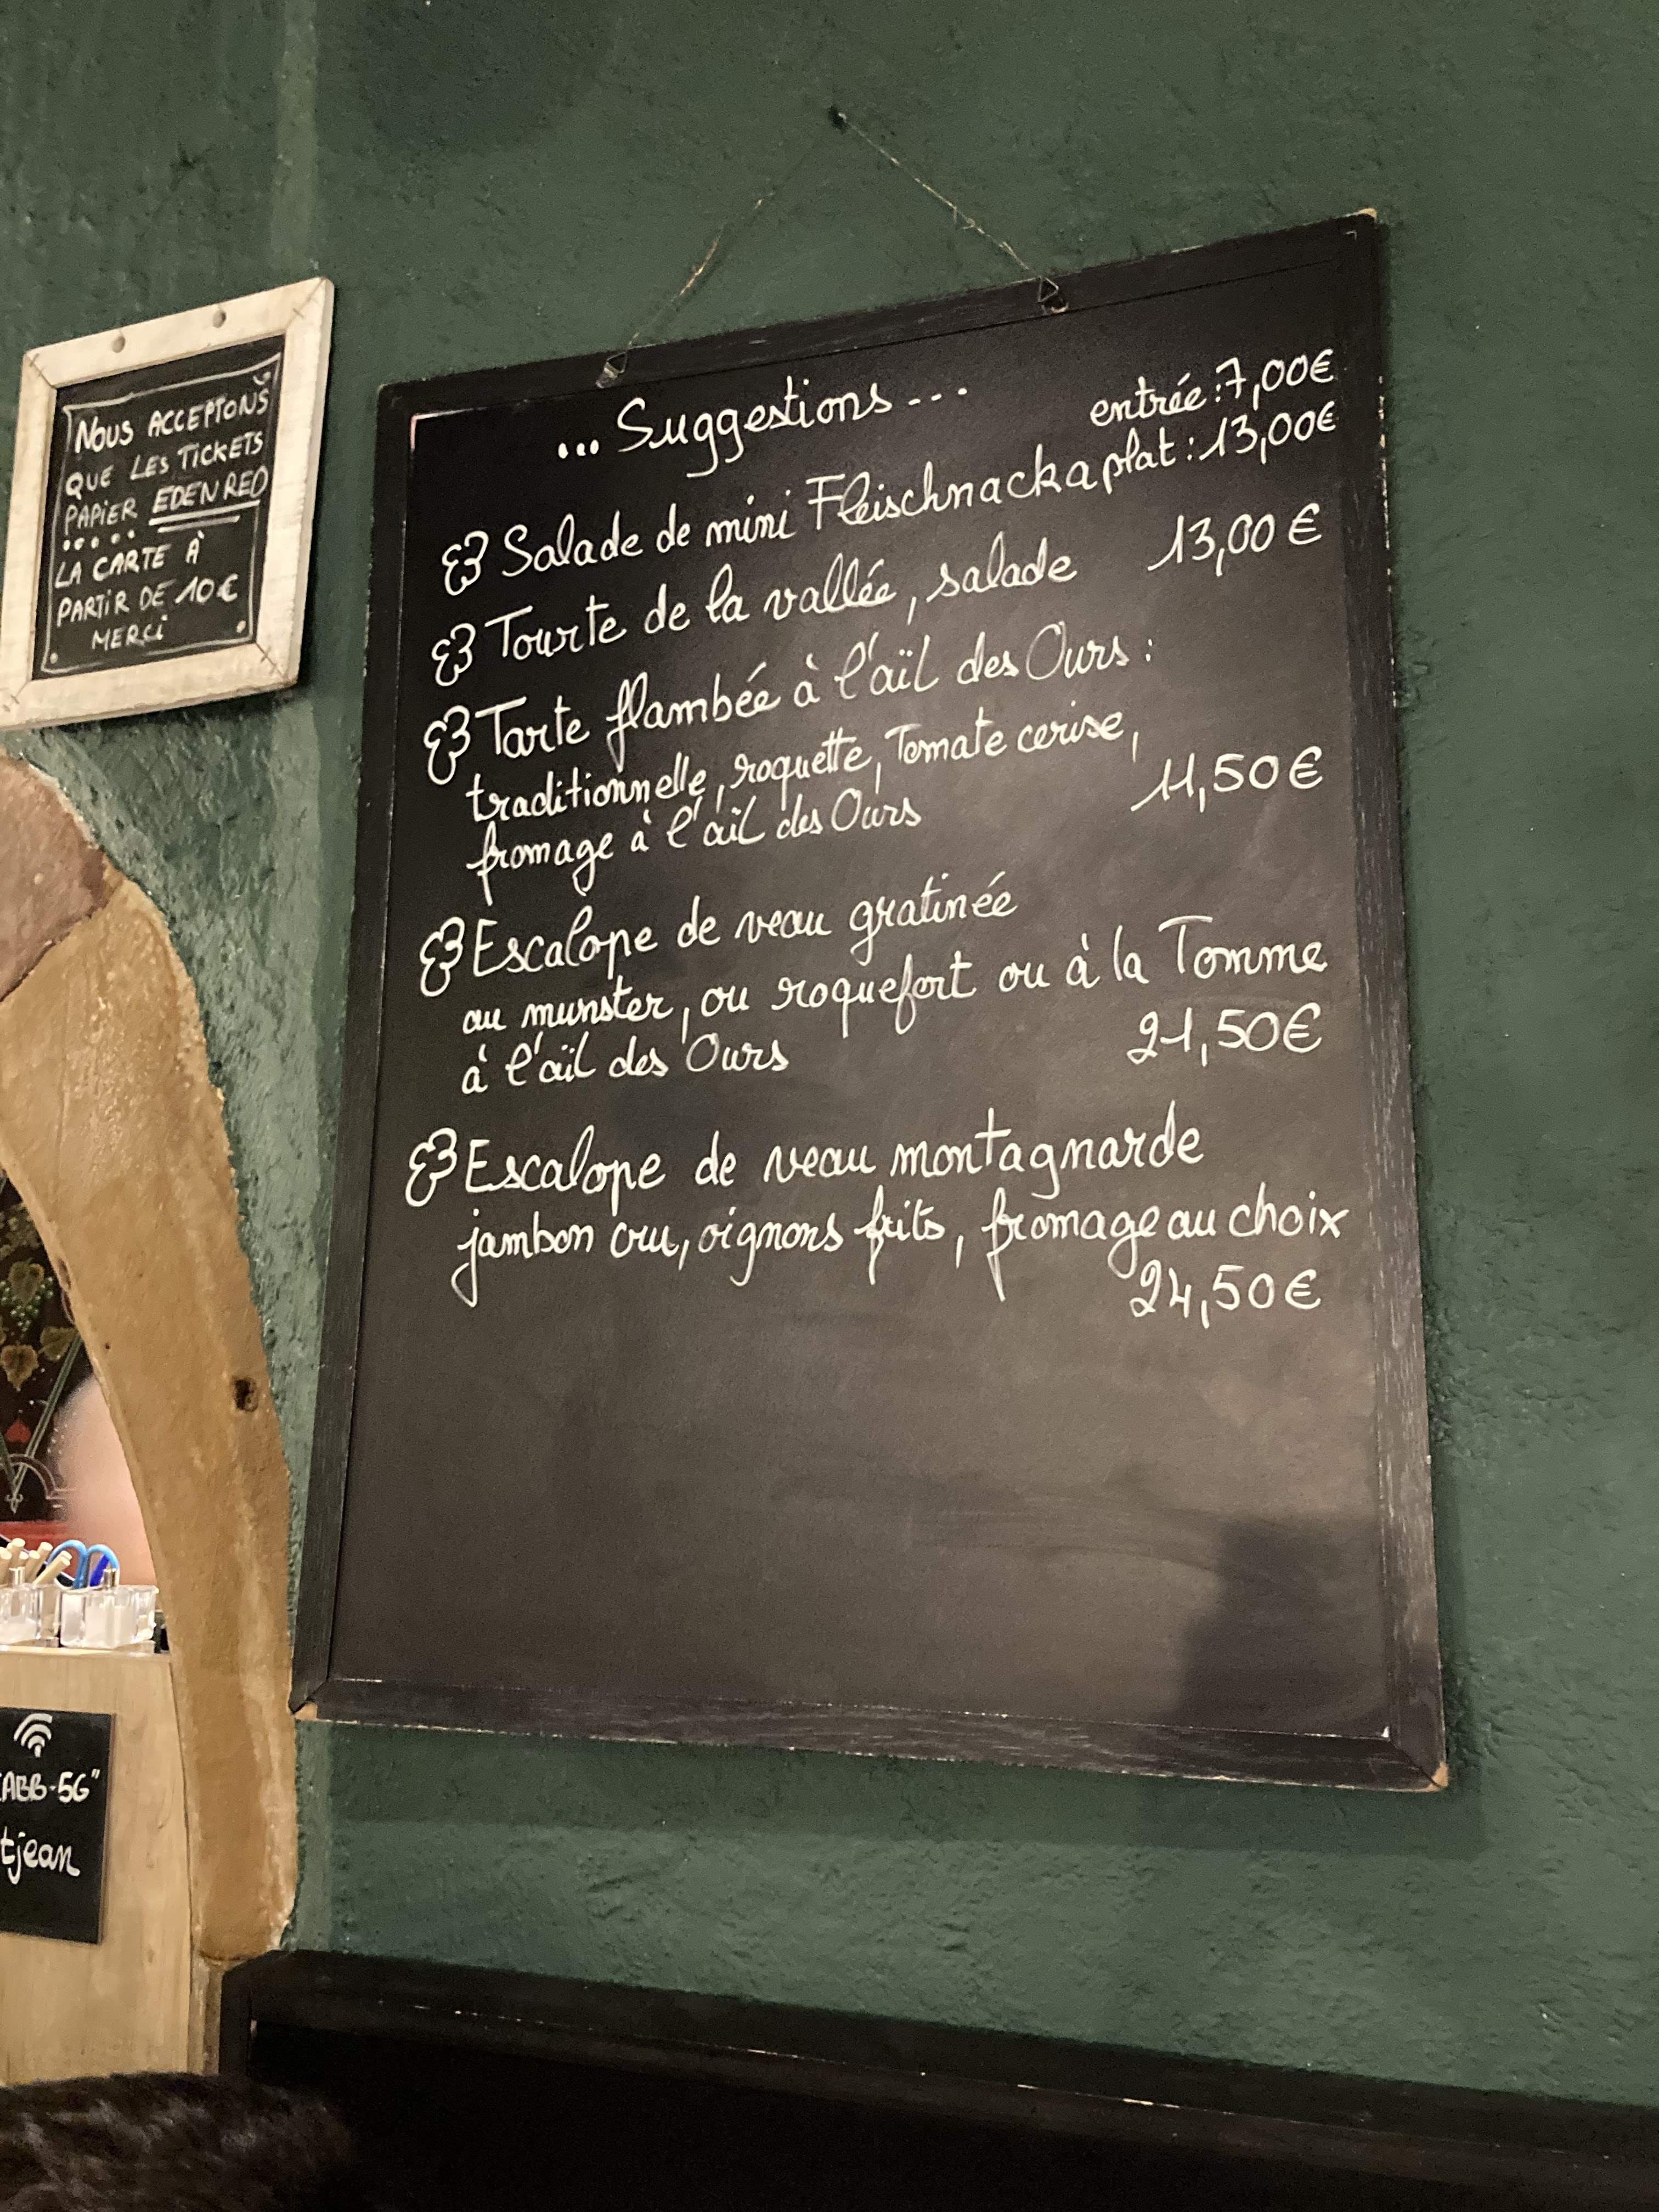 NOUS ACCEPTONS
QUE LES TICKETS
PAPIER EDENRED
LA CARTE À
PARTIR DE 10€
MERCI
... Suggestions ...
entrée : 7,00€
Salade de mini Fleischnacka plat : 13,00€
Tourte de la vallée, salade 13,00 €
Tarte flambée à l'aïl des Ours :
traditionnelle, roquette, Tomate cerise,
fromage à l'aïl des Ours 11,50€
Escalope de veau gratinée
au munster, ou roquefort ou à la Tomme
à l'aïl des Ours 21,50€
Escalope de veau montagnarde
jambon cru, oignons frits, fromage au choix
24,50€
ABB-5G"
tjean